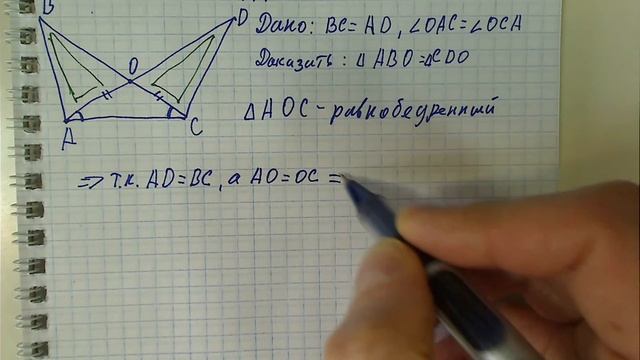 B
D
O
A
C
Дано: BC = AD, ∠OAC = ∠OCA
Доказать: △ABO = △CDO
△AOC - равнобедренный
=> т.к. AD = BC, а AO = OC =